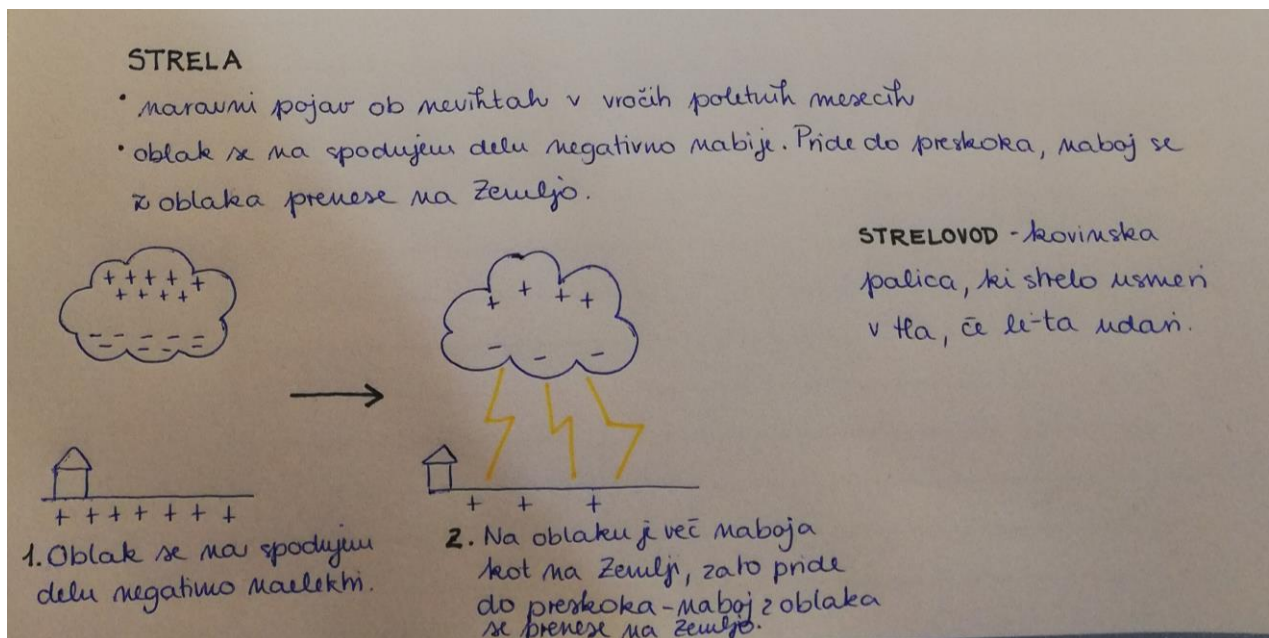 STRELA
• naravni pojav ob nevihtah v vročih poletnih mesecih
• oblak se na spodnjem delu negativno nabije. Pride do preskoka, naboj se
z oblaka prenese na Zemljo.
STRELOVOD - kovinska
palica, ki strelo usmeri
v tla, če le-ta udari.
+ + + + +
+ + + +
- - - - -
- - - -
+ + + + + + +
1. Oblak se na spodnjem
delu negativno naelektri.
+ + + +
- - -
+ + +
2. Na oblaku je več naboja
kot na Zemlji, zato pride
do preskoka - naboj z oblaka
se prenese na zemljo.